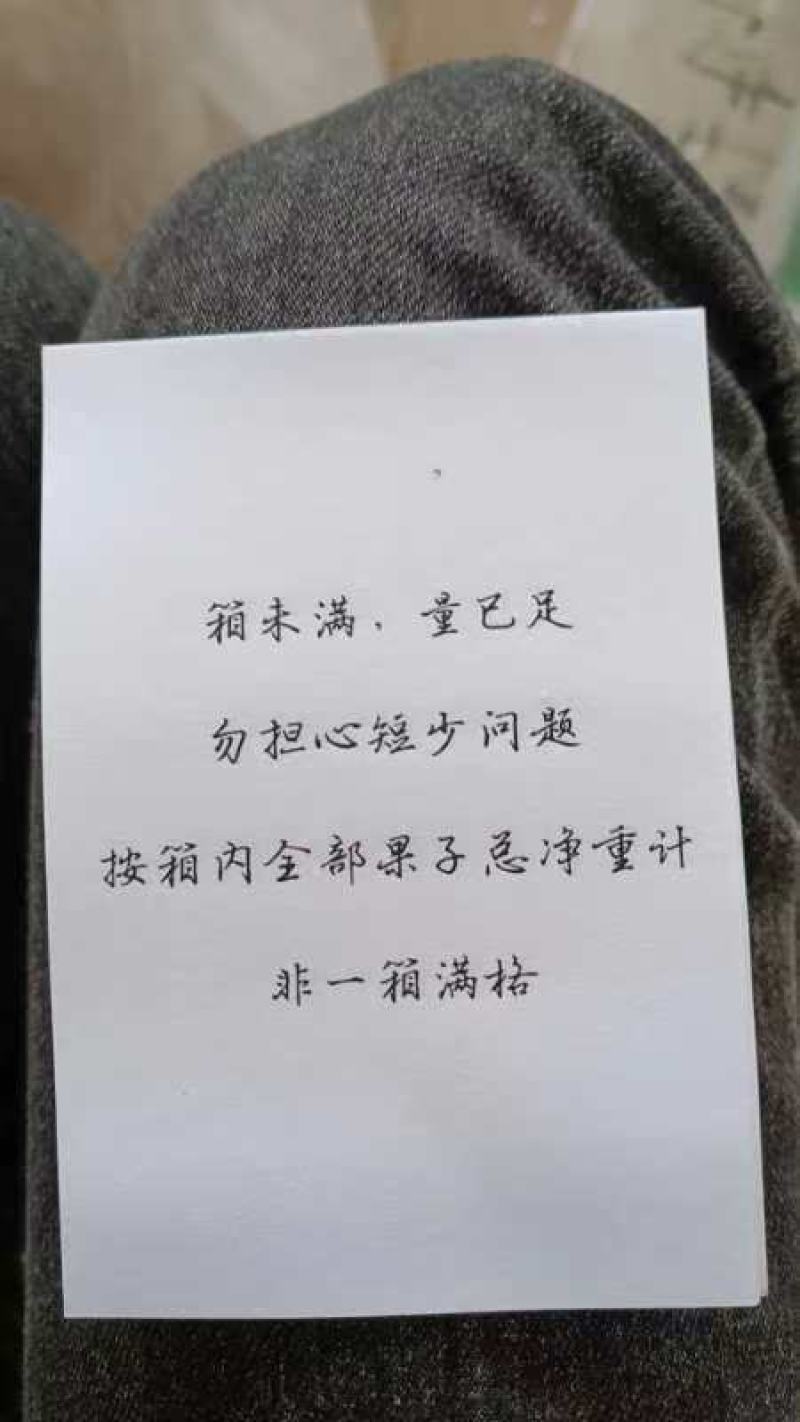 箱未满，量已足
勿担心短少问题
按箱内全部果子总净重计
非一箱满格